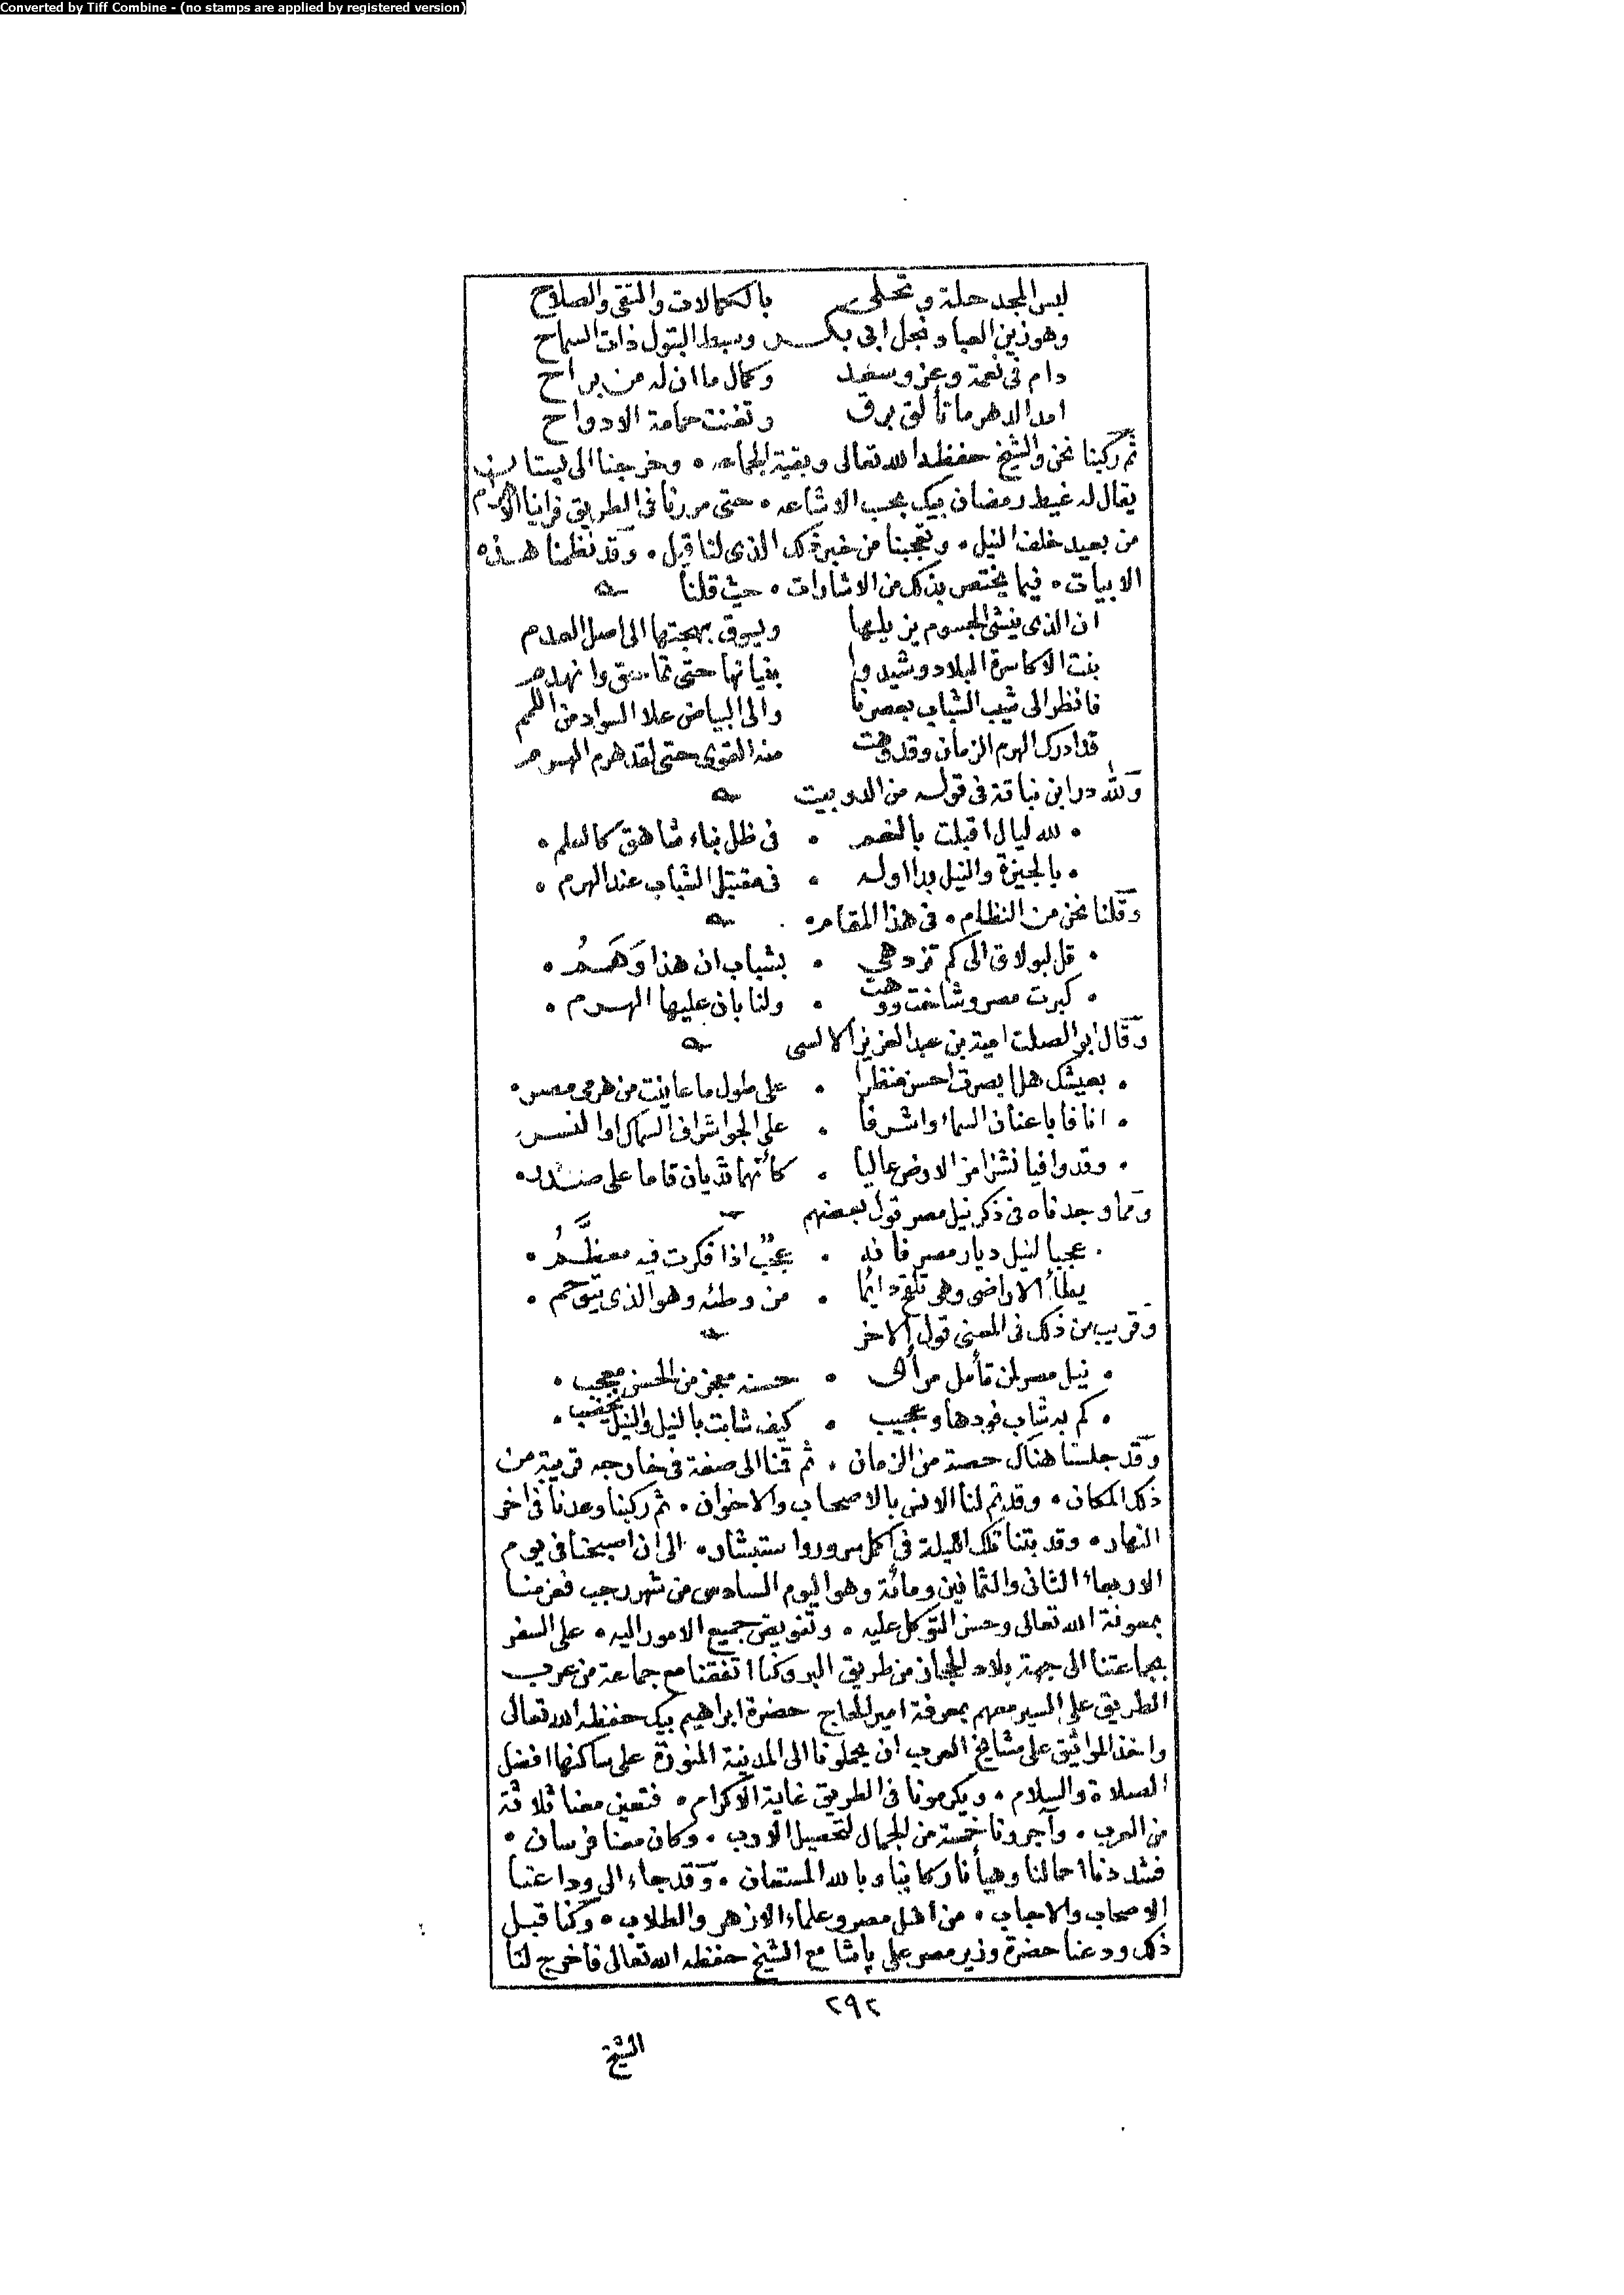 Converted by Tiff Combine - (no stamps are applied by registered version)
لبس المجد حلة وتحلى بالكمالات والتقى والصلاح
وهو زين العباد نجل ابى بكر وسبط البتول ذات السماح
دام فى نعمة وعز وسعد وكمال ما ان له من براح
امد الدهر ما تألق برق وتغنت حمامة الادواح
ثم ركبنا نحن والشيخ حفظه الله تعالى وبقية الجماعه ٠ وخرجنا الى بستان
يقال له غيط رمضان بيك بحسب الاشاعه ٠ حتى مررنا فى الطريق فراينا الاهرام
من بعيد خلف النيل ٠ وتعجبنا من خبر ذلك الذى لنا قيل ٠ وقد نظمنا هذه
الابيات ٠ فيما يختص بذلك من الاشارات ٠ حيث قلنا
ان الذى ينشى الجسوم يزيلها ويسوق بهجتها الى اصل العدم
بنت الاكاسرة البلاد وشيدوا بنيانها حتى تماسق وانهدم
فانظر الى شيب الشباب بعصرنا والى البياض علا السواد من اللمم
قد ادرك الهرم الزمان وقد وهت منه القوى حتى لقد هرم الهرم
ولله در ابن نباتة فى قوله من الدوبيت
٠ لله ليال اقبلت بالنعم ٠ فى ظل بناء شاهق كالعلم ٠
٠ بالجيزة والنيل بدا اوله ٠ فى مقتبل الشباب عند الهرم ٠
وقلنا نحن من النظام ٠ فى هذا المقام ٠
٠ قل لبولاق الى كم تزدهى ٠ بشباب ان هذا وَهَمُ ٠
٠ كبرت مصر وشاخت ووهت ٠ ولنا بان عليها الهرم ٠
وقال ابو الصلت امية بن عبد العزيز الالسى
٠ بعيشك هل ابصرت احسن منظرا ٠ على طول ما عاينت من هرمى مصر ٠
٠ انافا باعنان السماء واشرفا ٠ على الجو اشراف السماك او النسر
٠ وقد وافيا نشزا من الارض عاليا ٠ كأنهما ثديان قاما على صدر ٠
ومما وجدناه فى ذكر نيل مصر قول بعضهم
٠ عجبا لنيل ديار مصر فانه ٠ عجبٌ اذا فكرت فيه معظَّمُ ٠
يطأ الاراضى وهى تلقح دائما ٠ من وطئه وهو الذى يتوحم ٠
وقريب من ذلك فى المعنى قول الاخر
٠ نيل مصر لمن تأمل مرأى ٠ حسنه معجز من الحسن معجب ٠
٠ كم به شاب فودها وعجيب ٠ كيف شابت بالنيل والنيل يخضب ٠
وقد جلسنا هناك حصة من الزمان ٠ ثم قمنا الى صفة فى خارجه قريبة من
ذلك المكان ٠ وقد تم لنا الانس بالاصحاب والاخوان ٠ ثم ركبنا وعدنا فى اخر
النهار ٠ وقد بتنا تلك الليلة فى اكمل سرور واستبشار ٠ الى ان اصبحنا فى يوم
الاربعاء الثانى والثمانين ومائة وهو اليوم السادس من شهر رجب فعزمنا
بمعونة الله تعالى وحسن التوكل عليه ٠ وتفويض جميع الامور اليه ٠ على السفر
بجماعتنا الى جهة بلاد الحجاز من طريق البر وكنا اتفقنا مع جماعة من عرب
الطريق على المسير معهم بمعرفة امير الحاج حضرة ابراهيم بيك حفظه الله تعالى
واخذ المواثيق على مشايخ العرب ان يحملونا الى المدينة المنورة على ساكنها افضل
الصلاة والسلام ٠ ويكرمونا فى الطريق غاية الاكرام ٠ فتعين معنا ثلاثة
من العرب ٠ وآجرونا خمسة من الجمال لتحصيل الارب ٠ وكان معنا فرسان ٠
فشددنا احمالنا وهيأنا ركابنا وبالله المستعان ٠ وقد جاء الى وداعنا
الاصحاب والاحباب ٠ من اهل مصر وعلماء الازهر والطلاب ٠ وكنا قبل
ذلك ودعنا حضرة وزير مصر على پاشا مع الشيخ حفظه الله تعالى فاخرج لنا
٢٩٢
الشيخ